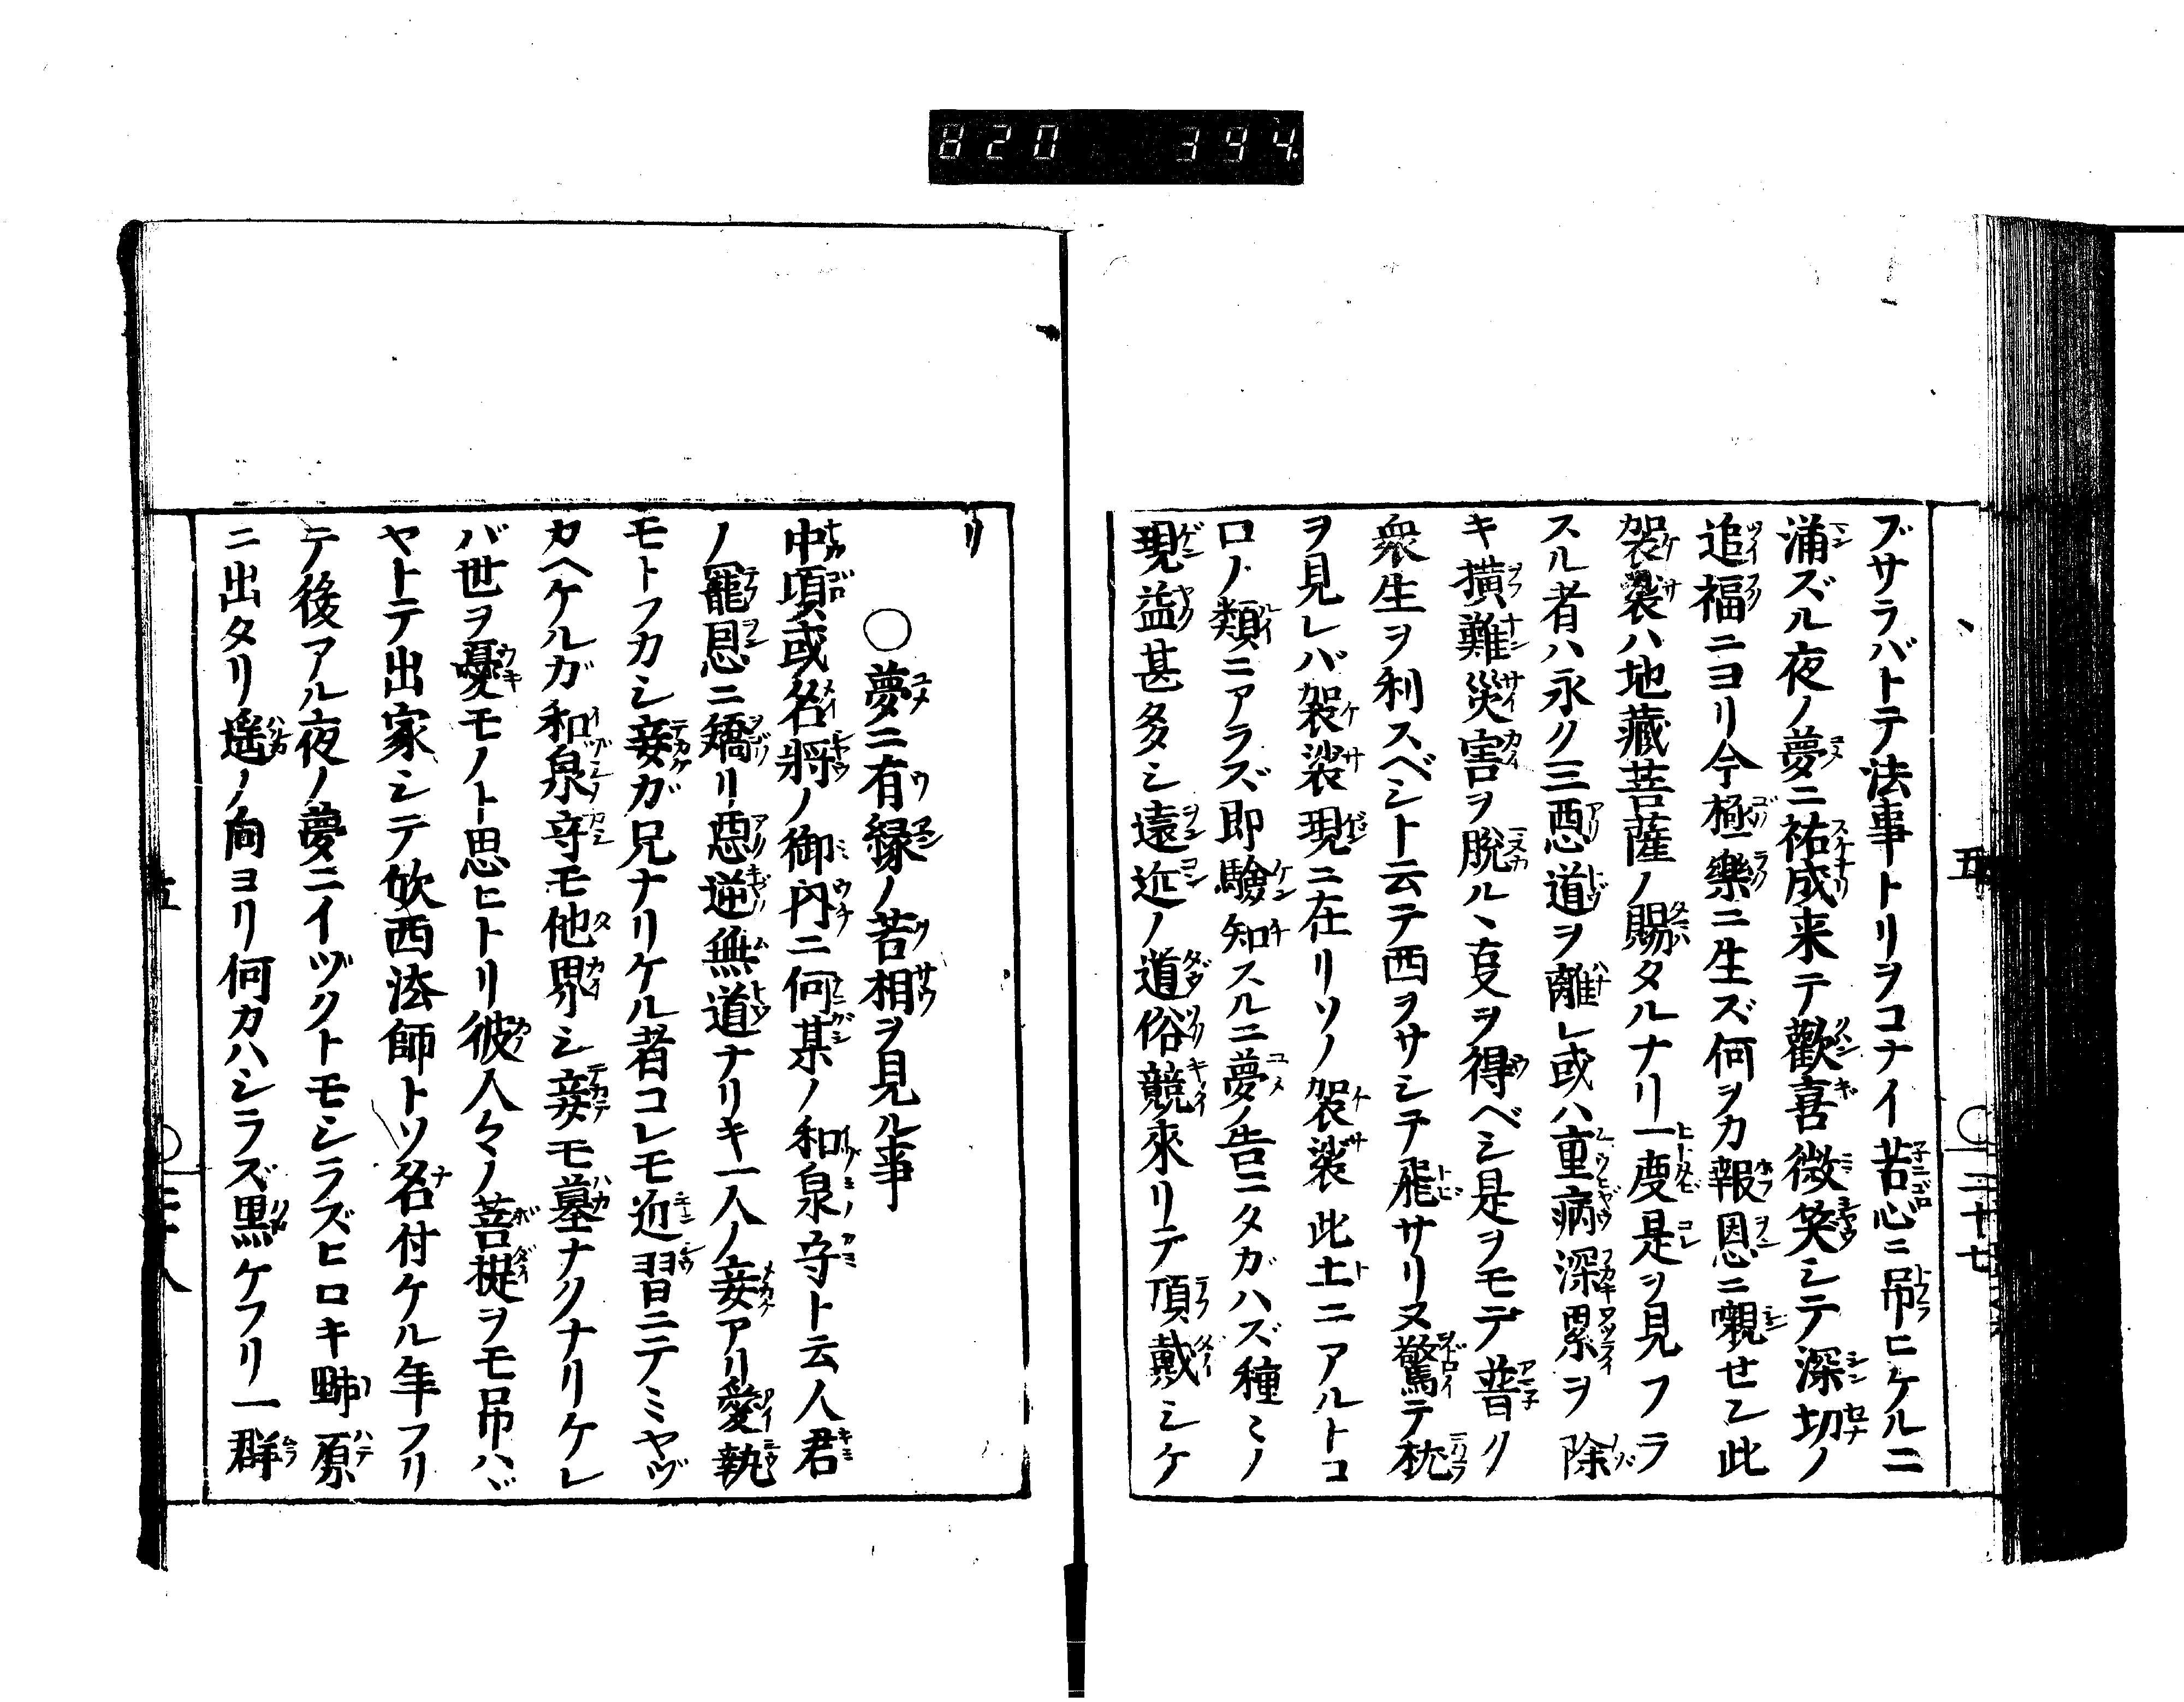 820 394.
五 〇二十七
ブサラバトテ法事トリヲコナイ苦心ニ吊ヒケルニ
満ズル夜ノ夢ニ祐成来テ歡喜微笑シテ深切ノ
追福ニヨリ今極樂ニ生ズ何ヲカ報恩ニ嚫せン此
袈裟ハ地藏菩薩ノ賜タルナリ一度是ヲ見フラ
スル者ハ永ク三惡道ヲ離レ或ハ重病深累ヲ除
キ横難災害ヲ脱ルヽ支ヲ得ベシ是ヲモテ普ク
衆生ヲ利スベシト云テ西ヲサシテ飛サリヌ驚テ枕
ヲ見レバ袈裟現ニ在リソノ袈裟此土ニアルトコ
ロノ類ニアラズ即驗知スルニ夢ノ告ニタガハズ種〻ノ
現益甚多シ遠近ノ道俗競來リテ頂戴シケ
リ
〇夢ニ有縁ノ苦相ヲ見ル事
中頃或名將ノ御内ニ何某ノ和泉守ト云人君
ノ寵恩ニ矯リ惡逆無道ナリキ一人ノ妾アリ愛執
モトフカシ妾ガ兄ナリケル者コレモ近習ニテミヤヅ
カヘケルガ和泉守モ他界シ妾モ墓ナクナリケレ
バ世ヲ憂モノト思ヒトリ彼人々ノ菩提ヲモ吊ハヾ
ヤトテ出家シテ欣西法師トソ名付ケル年フリ
テ後アル夜ノ夢ニイヅクトモシラズヒロキ野原
ニ出タリ遥ノ向ヨリ何カハシラズ黒ケフリ一群